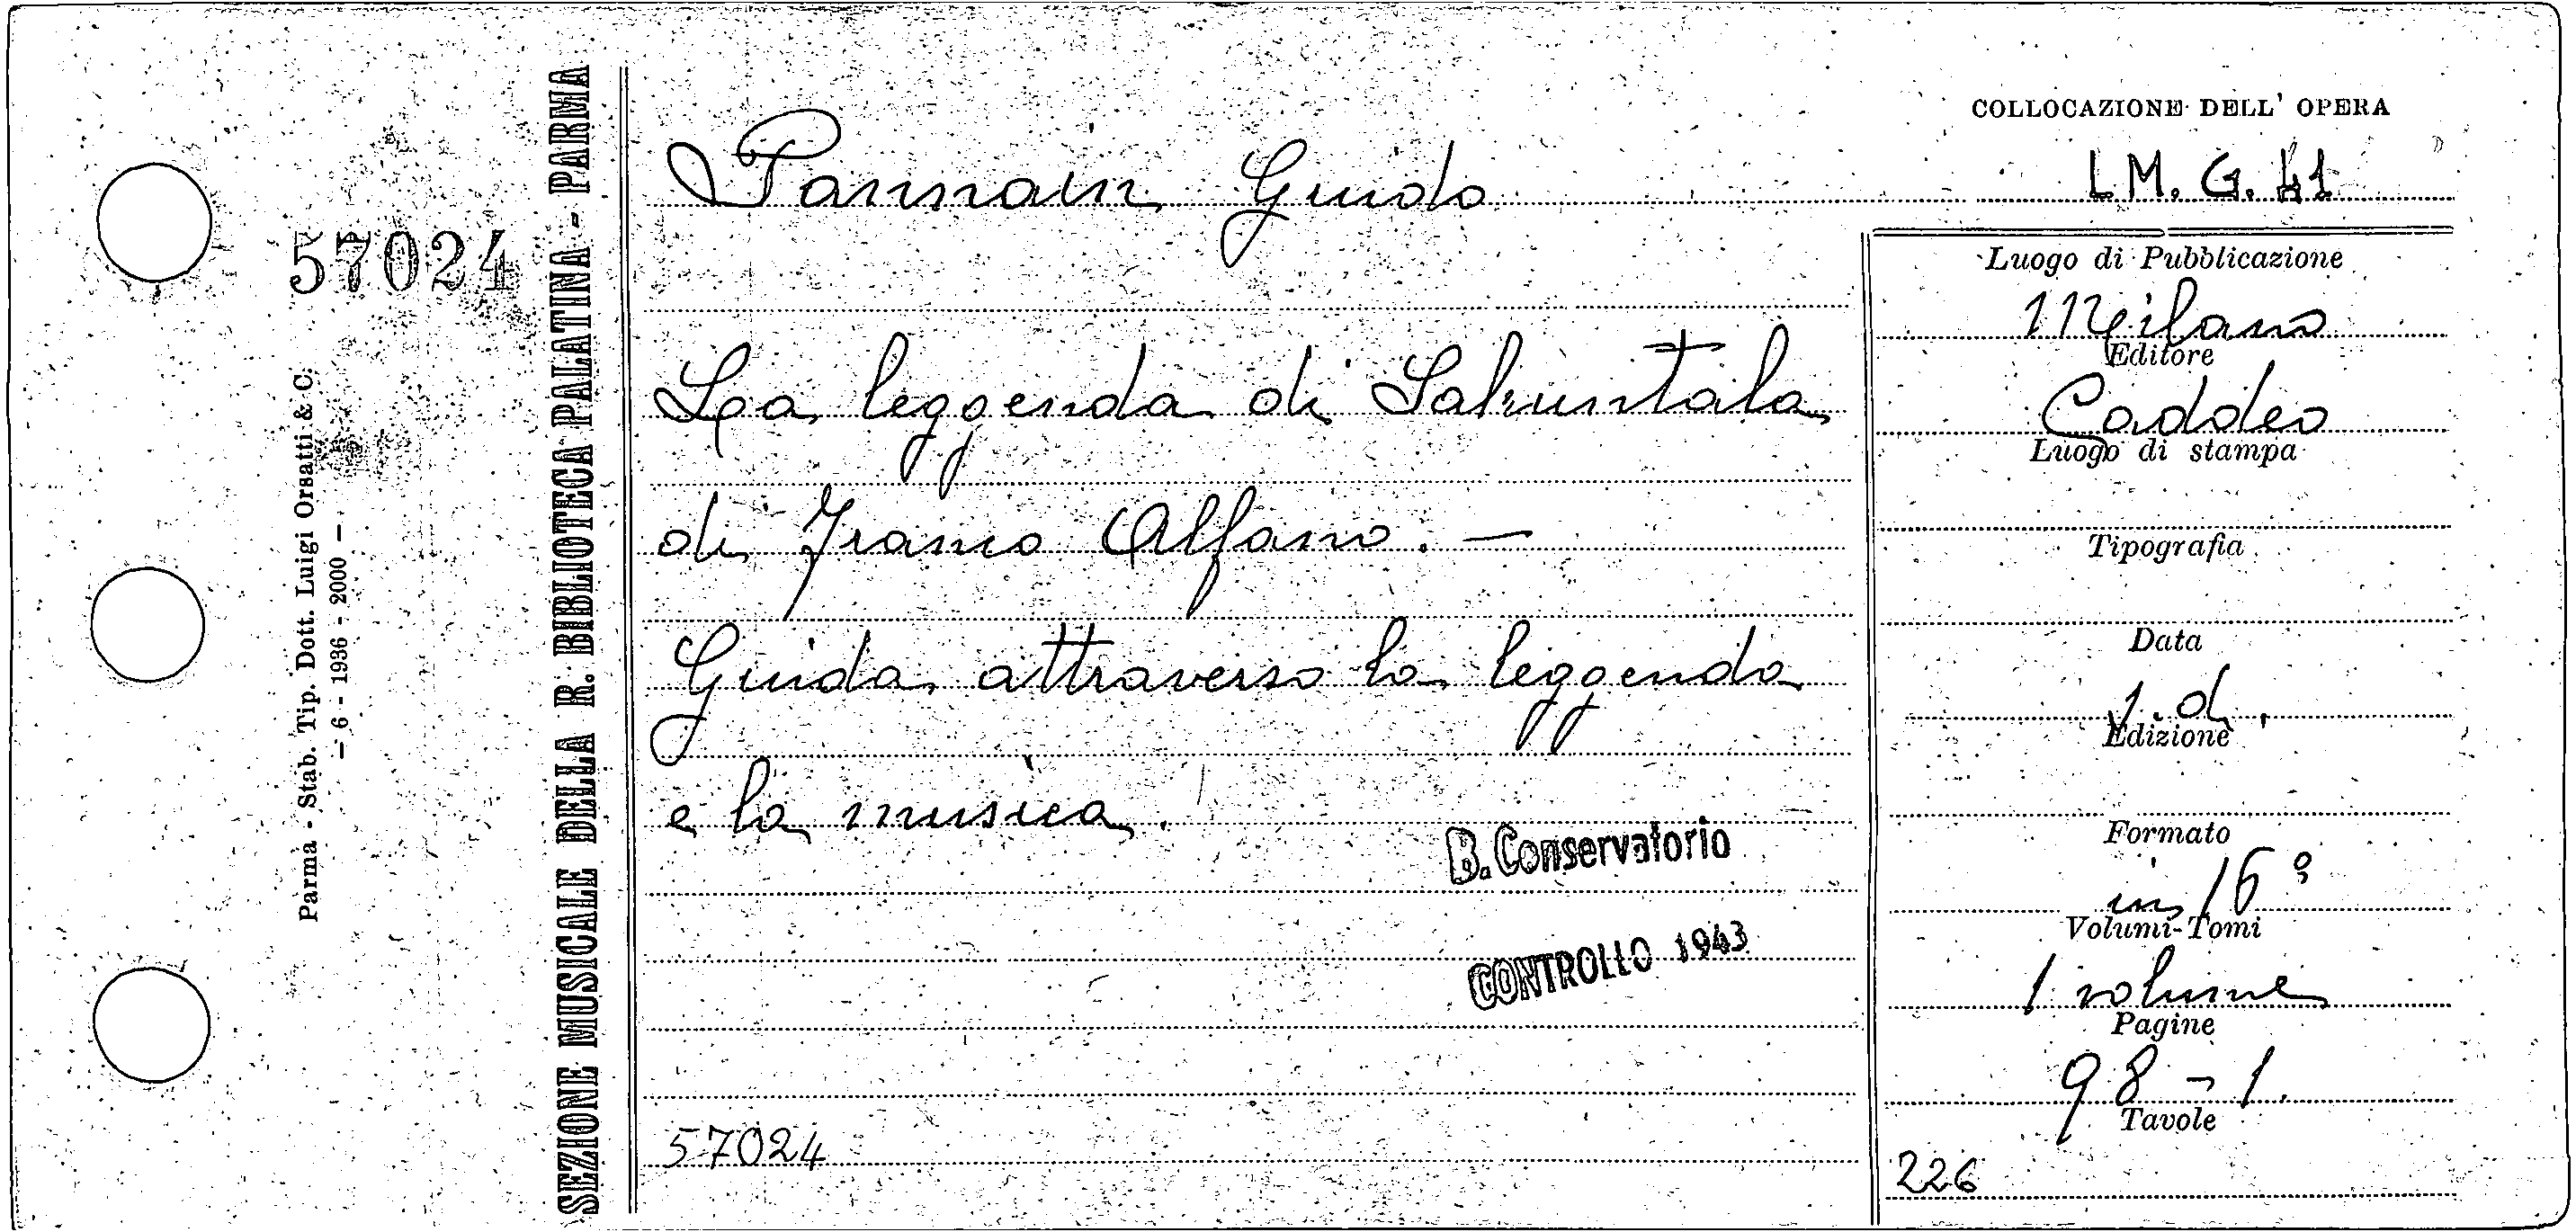 57024
Parma - Stab. Tip. Dott. Luigi Orsatti & C.
— 6 - 1936 - 2000 —
SEZIONE MUSICALE DELLA R. BIBLIOTECA PALATINA - PARMA
Pannain Guido
La leggenda di Sakuntala
di Franco Alfano. —
Guida attraverso la leggenda
e la musica.
B. Conservatorio
CONTROLLO 1943
57024
COLLOCAZIONE DELL' OPERA
LM. G. 41
Luogo di Pubblicazione
Milano
Editore
Caddeo
Luogo di stampa
Tipografia
Data
s.d.
Edizione
Formato
in 16º
Volumi-Tomi
1 volume
Pagine
98-1.
Tavole
226